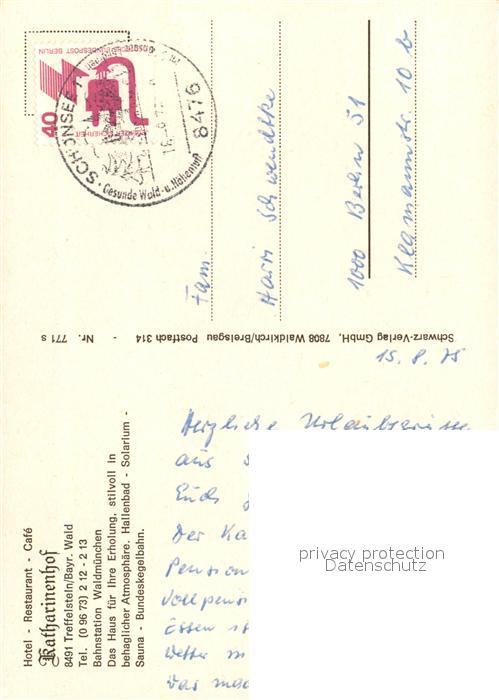 Hotel - Restaurant - Café
Katharinenhof
8491 Treffelstein/Bayr. Wald
Tel. (0 96 73) 2 12 - 2 13
Bahnstation Waldmünchen
Das Haus für Ihre Erholung, stilvoll in
behaglicher Atmosphäre. Hallenbad - Solarium -
Sauna - Bundeskegelbahn.
Schwarz-Verlag GmbH, 7808 Waldkirch/Breisgau Postfach 314 - Nr. 771 s
15.8.75
Herzliche Urlaubsgrüsse
aus
Euch
Der Ka
Pension
Vollpensi
Essen is
Wetter
Das
Fam.
Harri Schwendtke
1000 Berlin 51
Klemannstr. 10 b
DEUTSCHE BUNDESPOST BERLIN
40
SCHÖNSEE 1
8476
Gesunde Wald- u. Höhenluft
privacy protection
Datenschutz